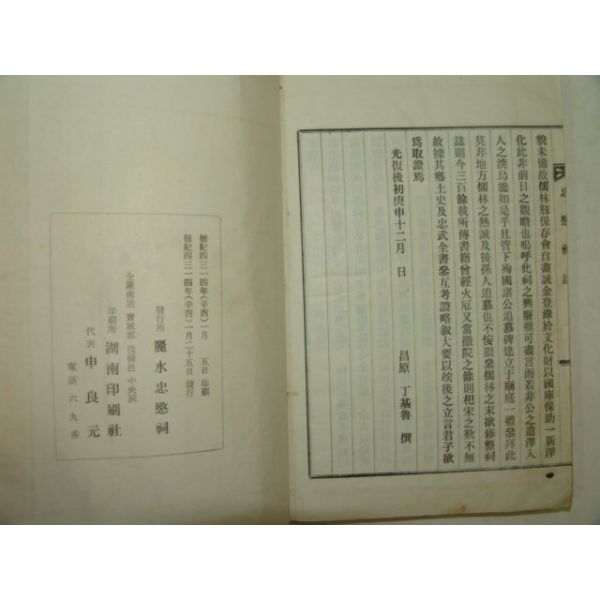 忠愍祠誌
貌未備故儒林殫保存會自盡誠金登錄於文化財以國庫保助一新淨
化此非前日之觀瞻也嗚呼此祠之興廢雖可盡言而若非公之遺澤入
人之深烏能如是乎且管下殉國諸公追慕碑建立于廟庭一體參拜此
莫非地方儒林之熱誠及後孫人追慕也不佞猥參儒林之末欲修整祠
誌則今三百餘載所傳書籍曾經火厄又當撤院之餘則杞宋之歎不無
故據其鄉土史及忠武全書參互考證略叙大要以竢後之立言君子欲
爲取證焉
光復後初庚申十二月 日
昌原 丁基魯 撰
檀紀四三一四年(辛酉)一月 五日 印刷
檀紀四三一四年(辛酉)一月二十五日 發行
發行所 麗水忠愍祠
全羅南道 寶城郡 筏橋邑 中央洞
印刷所 湖南印刷社
代表 申良元
電話 六九番